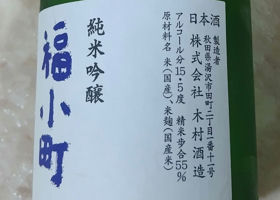 日本酒
製造者
秋田県湯沢市田町二丁目一番十一号
株式会社木村酒造
アルコール分15・5度 精米歩合55%
原材料名 米(国産)、米麹(国産米)
純米吟醸
福小町